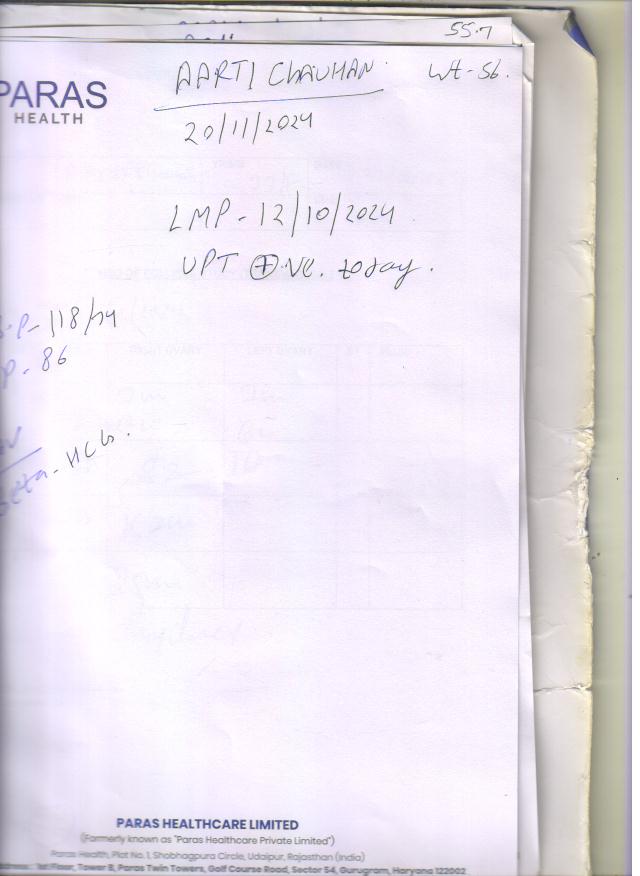 55.7
AARTI CHAUHAN.
Wt-56.
PARAS
HEALTH
20/11/2024
LMP - 12/10/2024
UPT +ve. today.
B.P- 118/74
P- 86
Beta- HCG.
RIGHT OVARY
LEFT OVARY
PARAS HEALTHCARE LIMITED
(Formerly known as "Paras Healthcare Private Limited")
Paras Health, Plot No. 1, Shobhagpura Circle, Udaipur, Rajasthan (India)
Address: 1st Floor, Tower B, Paras Twin Towers, Golf Course Road, Sector 54, Gurugram, Haryana 122002